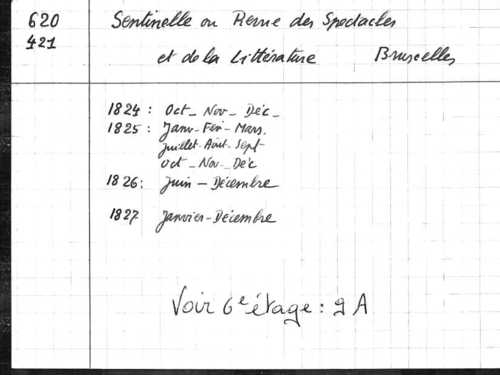 620
421
Sentinelle ou Revue des Spectacles
et de la Littérature Bruxelles
1824 : Oct - Nov - Déc -
1825 : Janv - Fév - Mars.
Juillet - Août - Sept
Oct - Nov - Déc
1826 : Juin - Décembre
1827 Janvier - Décembre
Voir 6e étage : 9 A